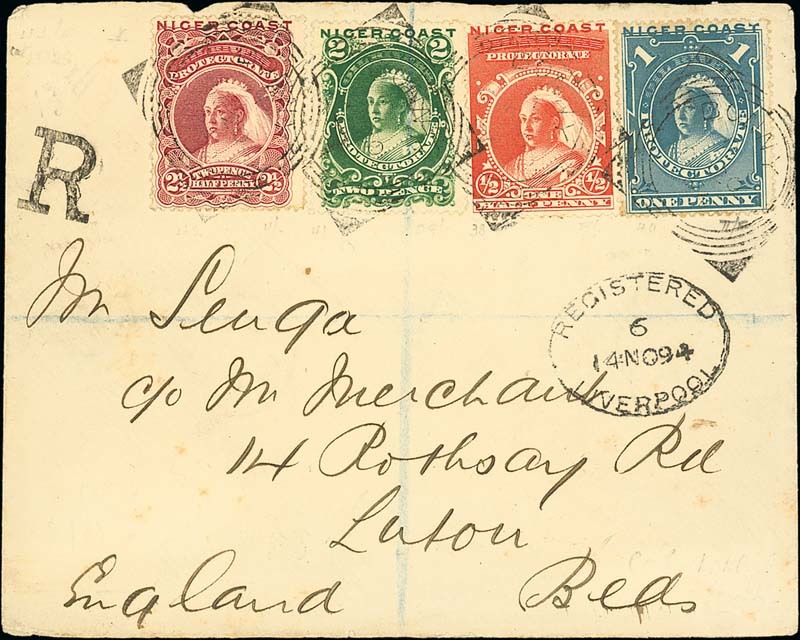 NIGER COAST
PROTECTORATE
2½ TWOPENCE 2½
HALFPENNY
NIGER COAST
2 2
PROTECTORATE
TWO PENCE
NIGER COAST
PROTECTORATE
½ ONE ½
HALF PENNY
NIGER COAST
1 1
PROTECTORATE
ONE PENNY
R
REGISTERED
6
14 NO 94
LIVERPOOL
Mr Senga
c/o Mr Merchant
14 Rothsay Rd
Luton
England Beds